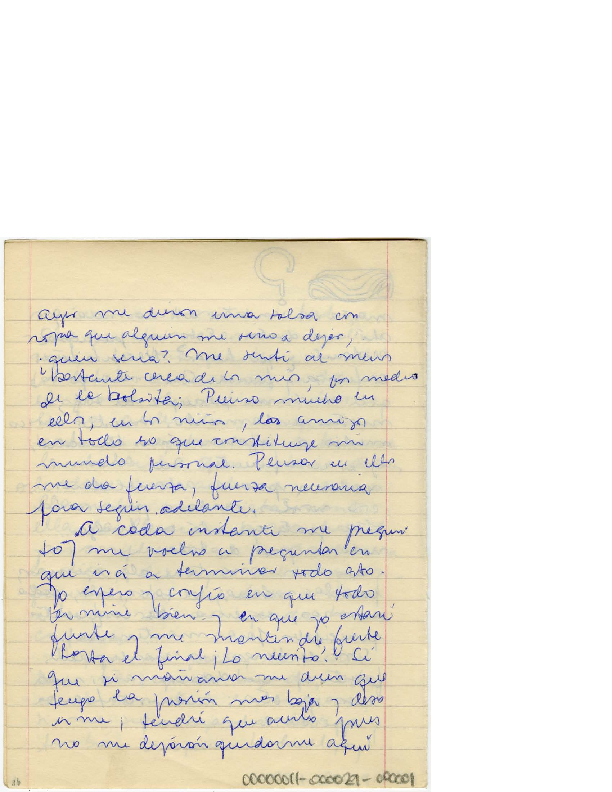 ayer me dieron una bolsa con
ropa que alguien me vino a dejar,
¿quien seria? Me senti al menos
bastante cerca de los mios, por medio
de la bolsita; Pienso mucho en
ellos, en los niños, los amigos
en todo lo que constituye mi
mundo personal. Pensar en ellos
me da fuerza, fuerza necesaria
para seguir adelante.
A cada instante me pregun
to y me vuelvo a preguntar en
que irá a terminar todo esto.
Yo espero y confío en que todo
termine bien y en que yo estaré
fuerte y me mantendré fuerte
hasta el final ¡Lo necesito! Sé
que si mañana me dicen que
tengo la presión mas baja y deso
tendré que pues
no me dejarán quedarme aquí
00000011-000029-000001